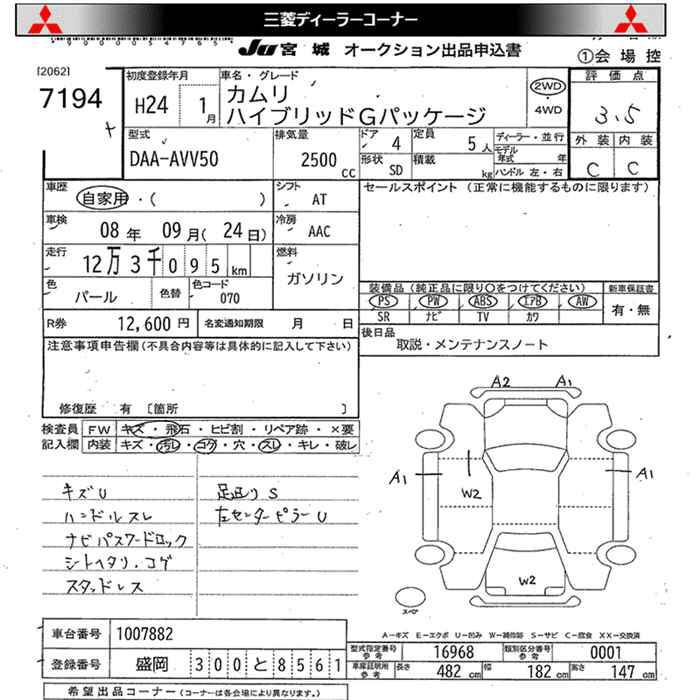 三菱ディーラーコーナー
JU 宮城 オークション出品申込書
①会場控
[2062]
7194
初度登録年月
H24 1月
車名・グレード
カムリ
ハイブリッドGパッケージ
2WD
4WD
評価点
3.5
型式
DAA-AVV50
排気量
2500 CC
ドア 4
定員 5人
形状 SD
積載 kg
ディーラー・並行
モデル年式 年
ハンドル 左・右
外装 内装
C C
車歴
自家用・( )
シフト
AT
セールスポイント (正常に機能するものに限ります)
車検
08年 09月(24日)
冷房
AAC
走行
12万3千095km
燃料
ガソリン
色
パール
色替
色コード
070
装備品(純正品に限り○をつけてください)
新車保証書
PS PW ABS エアB AW
SR ナビ TV カワ
有・無
R券 12,600円
名変通知期限 月 日
後日品
取説・メンテナンスノート
注意事項申告欄(不具合内容等は具体的に記入して下さい)
修復歴 有 〔箇所 〕
検査員記入欄
FW キズ・飛石・ヒビ割・リペア跡・×要
内装 キズ・汚レ・コゲ・穴・スレ・キレ・破レ
キズU
ハンドルスレ
ナビパスワードロック
シートヘタリ・コゲ
スタッドレス
足廻りS
左センターピラーU
A2 A1
A1 A1
W2
W2
スペア
A-キズ E-エクボ U-凹み W-補修跡 S-サビ C-腐食 XX-交換済
車台番号 1007882
型式指定番号参考 16968
類別区分番号参考 0001
登録番号 盛岡 300と8561
車庫証明用参考
長さ 482cm
幅 182cm
高さ 147cm
希望出品コーナー(コーナーは各会場により異なります。)